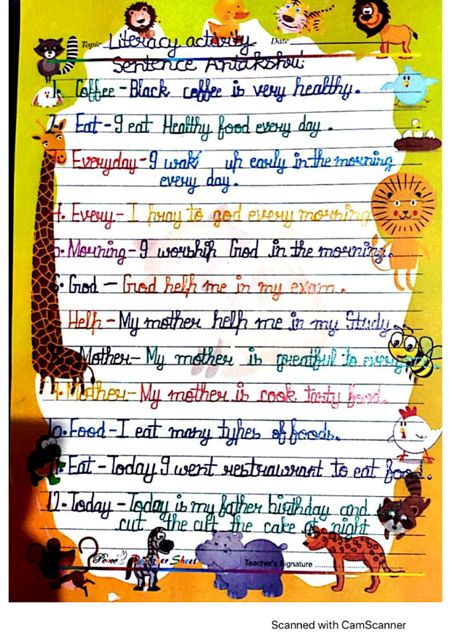 Topic Literacy activity Date
Sentence Antakshri
1. Coffee - Black coffee is very healthy.
2. Eat - I eat Healthy food every day.
Everyday - I wak up early in the morning
every day.
4. Every - I pray to god every morning
5. Morning - I worship God in the morning.
6. God - God help me in my exam.
Help - My mother help me in my Study
Mother - My mother is greatful to every
9. Mother - My mother is cook tasty food.
10. Food - I eat many types of foods.
11. Eat - Today I went restrawrant to eat food.
12. Today - Today is my father birthday and
cut the the cake at night
Sheet Teacher's Signature
Scanned with CamScanner